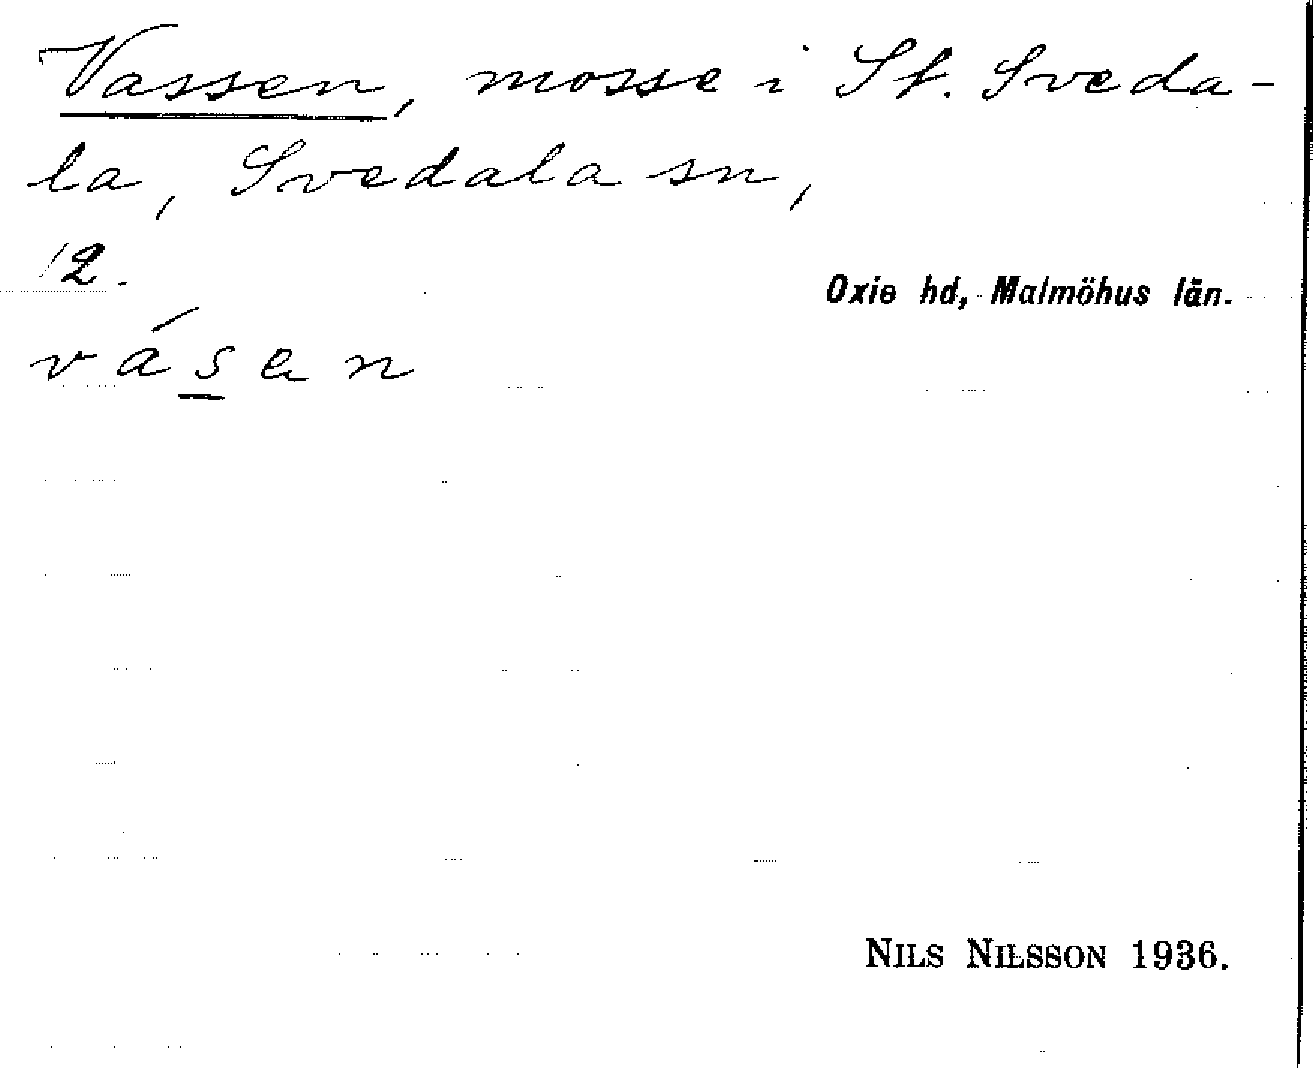 Vassen, mosse i St. Sveda-
la, Svedala sn,
12.
Oxie hd, Malmöhus län.
vásen
NILS NILSSON 1936.